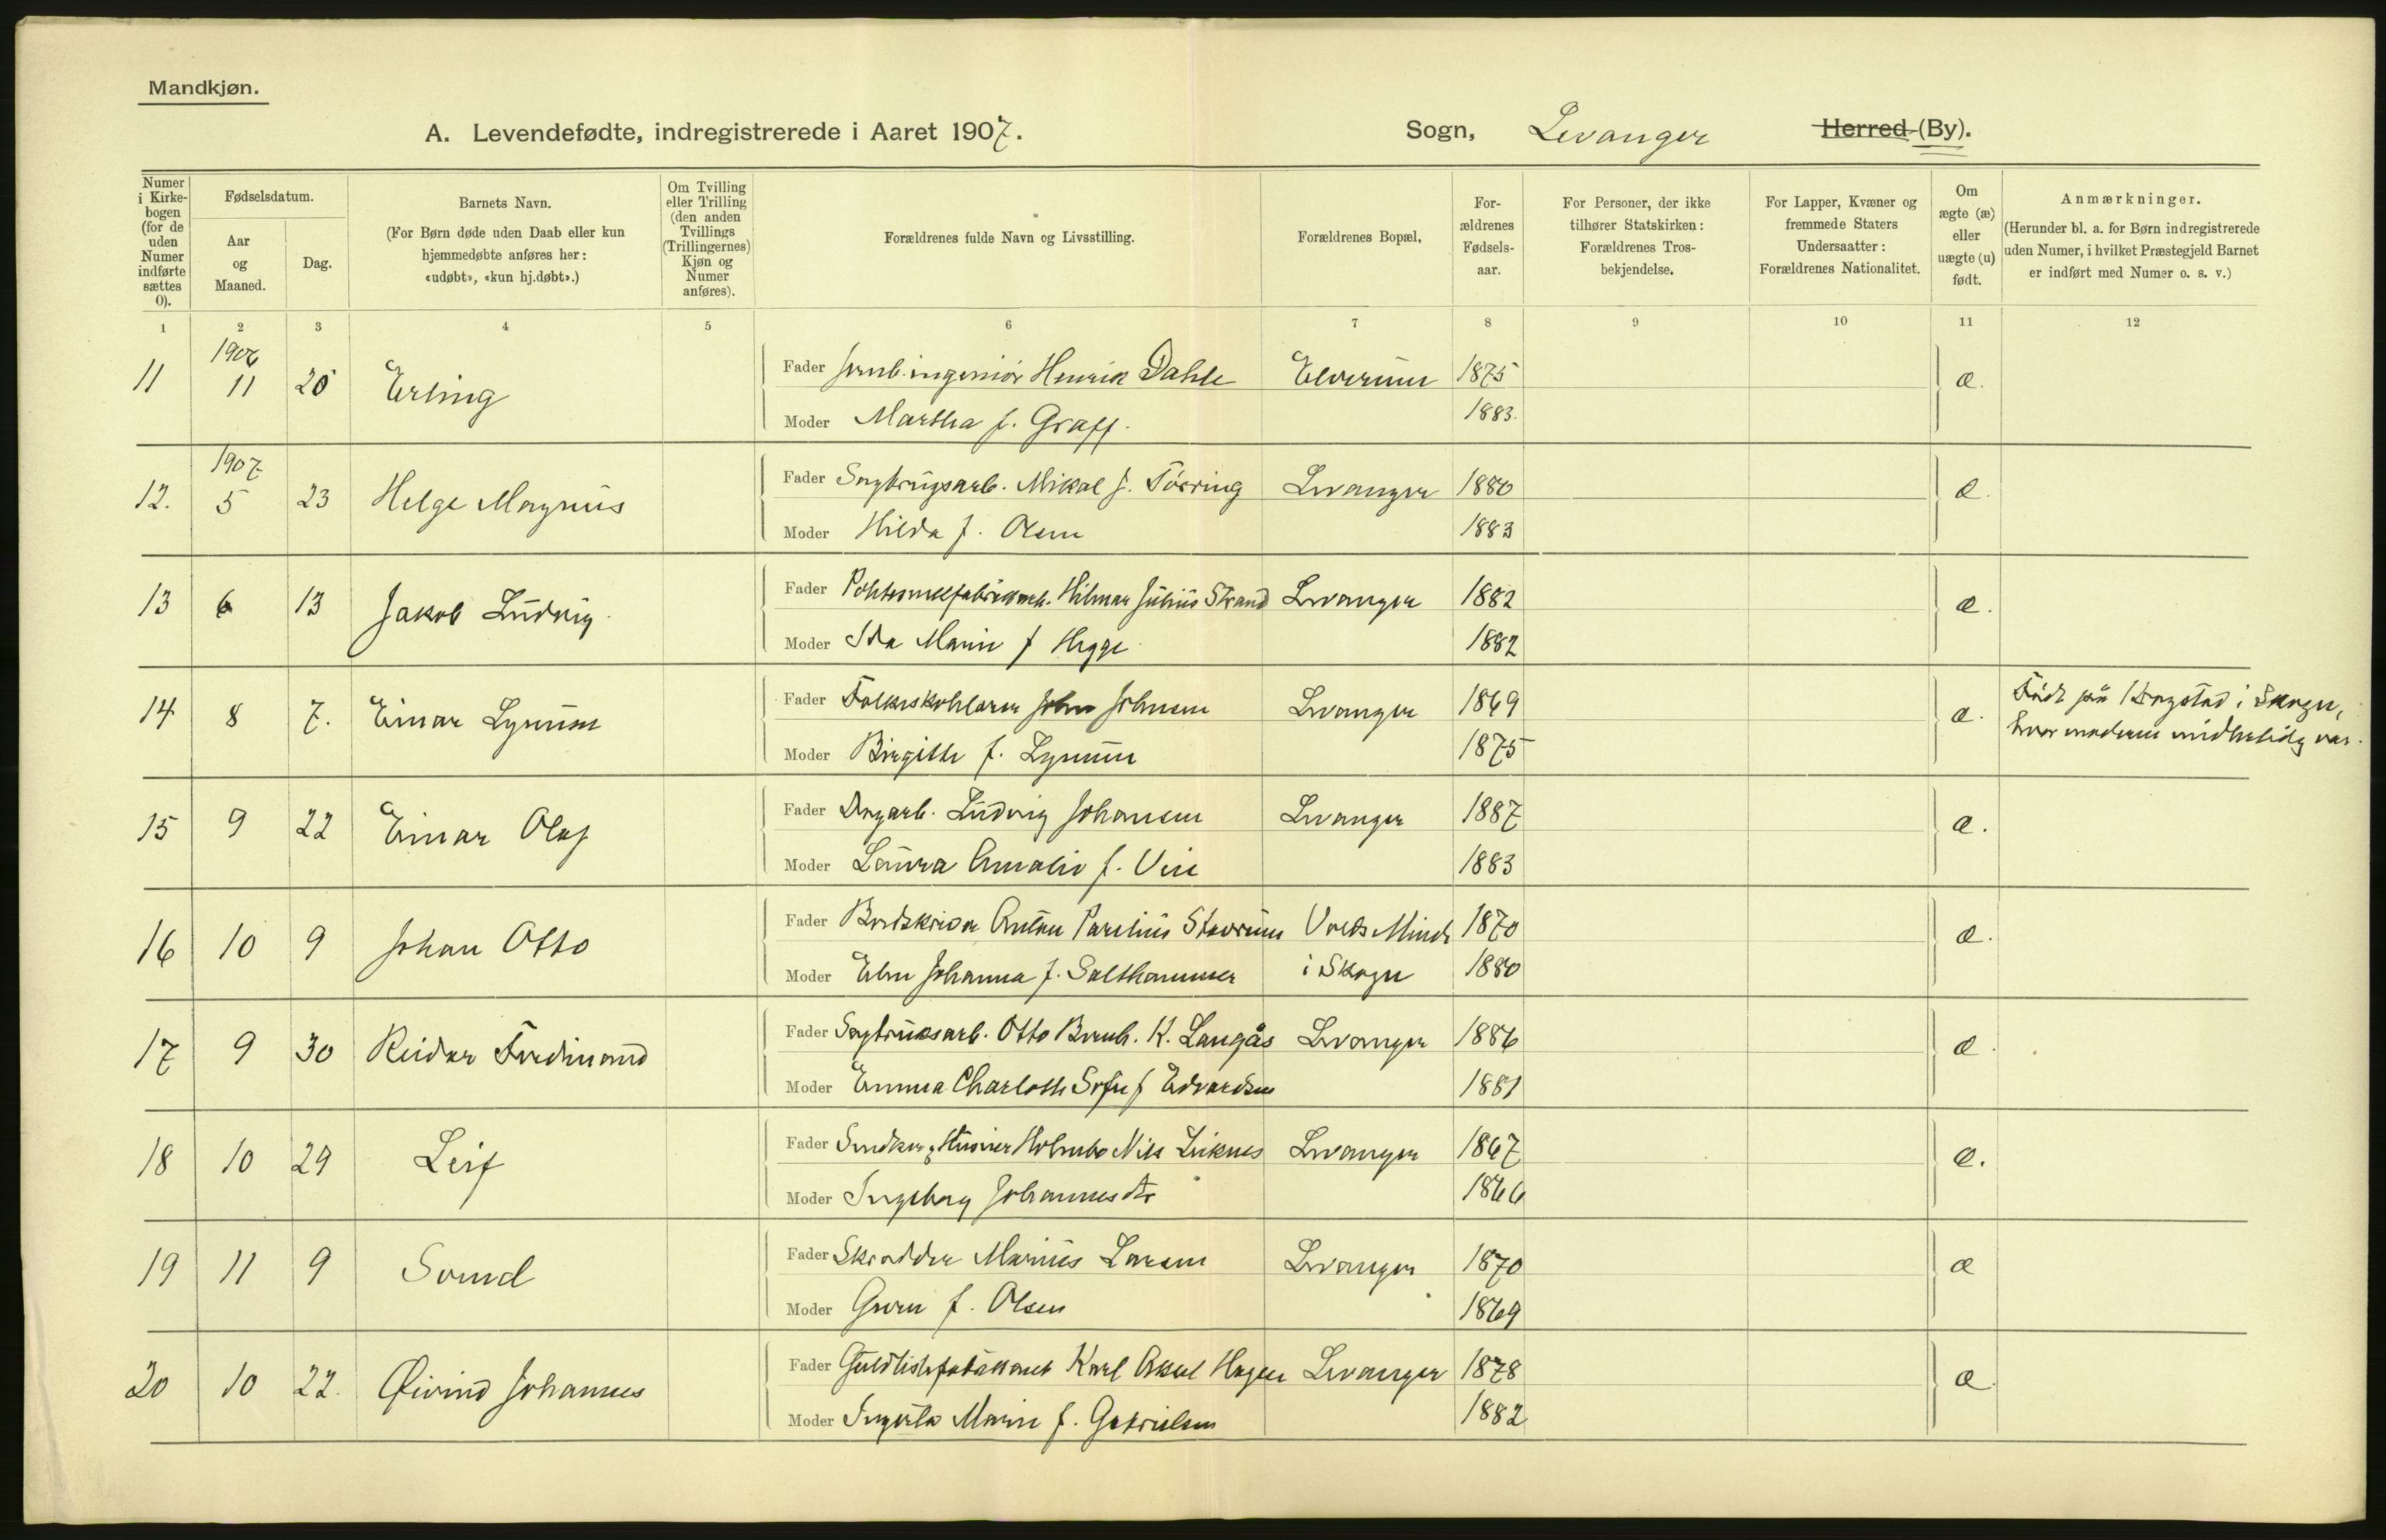 Mandkjøn.
A. Levendefødte, indregistrerede i Aaret 1907.
Sogn, Levanger Herred (By).
Numer i Kirkebogen (for de uden Numer indførte sættes 0).
Fødselsdatum.
Aar og Maaned.
Dag.
Barnets Navn.
(For Børn døde uden Daab eller kun hjemmedøbte anføres her: «udøbt», «kun hj.døbt».)
Om Tvilling eller Trilling (den anden Tvillings (Trillingernes) Kjøn og Numer anføres).
Forældrenes fulde Navn og Livsstilling.
Forældrenes Bopæl,
Forældrenes Fødselsaar.
For Personer, der ikke tilhører Statskirken: Forældrenes Trosbekjendelse.
For Lapper, Kvæner og fremmede Staters Undersaatter: Forældrenes Nationalitet.
Om ægte (æ) eller uægte (u) født.
Anmærkninger.
(Herunder bl. a. for Børn indregistrerede uden Numer, i hvilket Præstegjeld Barnet er indført med Numer o. s. v.)
1 2 3 4 5 6 7 8 9 10 11 12
1906
11 11 25 Erling Fader Jernb.ingeniör Henrik Dahle Elverum 1875 æ.
Moder Martha f. Graff. 1883.
1907
12. 5 23 Helge Magnus Fader Sagbrugsarb. Mikal J. Törring Levanger 1880 æ.
Moder Hilda f. Olsen 1883
13 6 13 Jakob Ludvig Fader Hilmar Julius Strand Levanger 1882 æ.
Moder Ida Marie f Hegge 1882
14 8 7. Einar Lynum Fader Folkeskolelærer John Johnsen Levanger 1869 æ.
Moder Birgithe f. Lynum 1875
Födt på i Skogn,
hvor moderen midlertidig var.
15 9 22 Einar Olaf Fader Dagarb. Ludvig Johansen Levanger 1887 æ.
Moder Laura Amalie f. Vin 1883
16 10 9 Johan Otto Fader Anton Parelius Stavrum Volds Minde 1870 æ.
Moder Elen Johanna f. Salthammer i Skogn 1880
17 9 30 Reidar Ferdinand Fader Sagbruksarb. Otto Bernh. K. Langås Levanger 1886 æ.
Moder Emma Charlotte Sofie f Edvardsen 1881
18 10 29 Leif Fader Snedker & Huseier Holmbo Nils Leiknes Levanger 1867 æ.
Moder Ingeborg Johannesdtr 1866
19 11 9 Svend Fader Skrædder Marius Larsen Levanger 1870 æ
Moder Guru f. Olsen 1869
20 10 22. Øivind Johannes Fader Karl Aksel Hagen Levanger 1878 æ.
Moder Marie f. Gabrielsen 1882